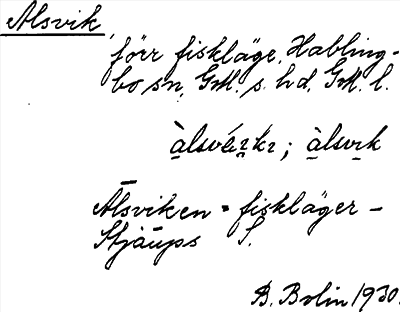 Alsvik
förr fiskläge, Habling-
bo sn, Gotl. s. hd, Gotl. l.
àlsvik
Älsviken = fiskläger –
Stjäups S.
B. Bolin 1930.